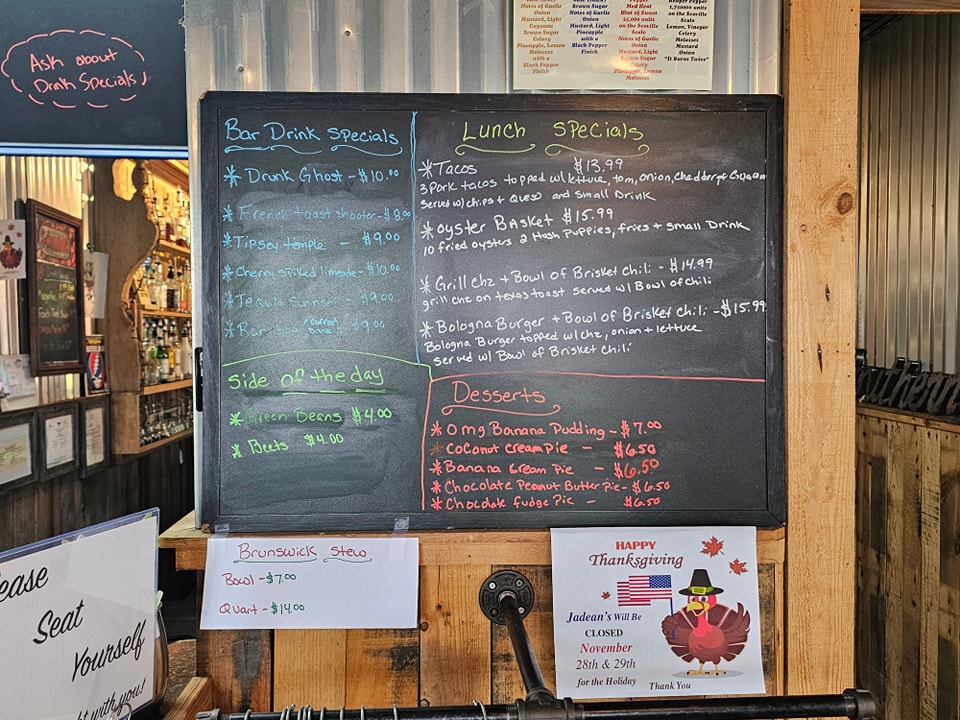 Ask about
Drink Specials!
Notes of Garlic
Onion
Mustard, Light
Cayenne
Brown Sugar
Celery
Pineapple, Lemon
Molasses
with a
Black Pepper
Finish
Brown Sugar
Notes of Garlic
Onion
Mustard, Light
Pineapple
with a
Black Pepper
Finish
Pepper
Med Heat
Hint of Sweet
55,000 units
on the Scoville
Scale
Notes of Garlic
Onion
Mustard, Light
Brown Sugar
Celery
Pineapple, Lemon
Molasses
Reaper Pepper
on the Scoville
Scale
Lemon, Vinegar
Celery
Molasses
Mustard
Onion
"It Burns Twice"
Bar Drink Specials
* Drunk Ghost - $10.00
* French toast shooter - $8.00
* Tipsey temple - $9.00
* Cherry spiked limeade - $10.00
* Tequila Sunrise $9.00
$9.00
Side of the day
* Green Beans $4.00
* Beets $4.00
Lunch Specials
* Tacos $13.99
3 Pork tacos topped w/ lettuce, tom, onion, chedder,
served w/ chips + Queso and small Drink
* oyster Basket $15.99
10 fried oysters 2 Hush Puppies, fries + small Drink
* Grill chz + Bowl of Brisket chili - $14.99
grill chz on texas toast served w/ Bowl of chili
* Bologna Burger + Bowl of Brisket chili - $15.99
Bologna Burger topped w/ chz, onion + lettuce
served w/ Bowl of Brisket chili
Desserts
* O mg Banana Pudding - $7.00
* Coconut cream pie - $6.50
* Banana Cream Pie - $6.50
* Chocolate Peanut Butter Pie - $6.50
* Chocolate fudge Pie - $6.50
Brunswick Stew
Bowl - $7.00
Quart - $14.00
HAPPY
Thanksgiving
Jadean's Will Be
CLOSED
November
28th & 29th
for the Holiday
Thank You
Please
Seat
Yourself
with you!